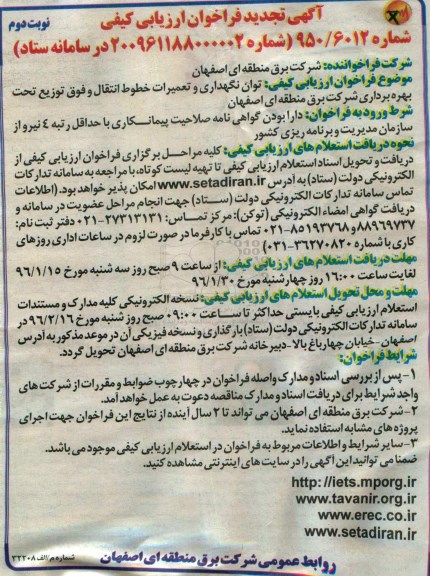 آگهی تجدید فراخوان ارزیابی کیفی
نوبت دوم
شماره ۹۵۰/۶۰۱۲ (شماره ۲۰۰۹۶۱۱۸۸۰۰۰۰۰۲ در سامانه ستاد)
شرکت فراخواننده: شرکت برق منطقه ای اصفهان
موضوع فراخوان ارزیابی کیفی: توان نگهداری و تعمیرات خطوط انتقال و فوق توزیع تحت
بهره برداری شرکت برق منطقه ای اصفهان
شرط ورود به فراخوان: دارا بودن گواهی نامه صلاحیت پیمانکاری با حداقل رتبه ٤ نیرو از
سازمان مدیریت و برنامه ریزی کشور
نحوه دریافت استعلام های ارزیابی کیفی: کلیه مراحل برگزاری فراخوان ارزیابی کیفی از
دریافت و تحویل اسناد استعلام ارزیابی کیفی تا تهیه لیست کوتاه، با مراجعه به سامانه تدارکات
الکترونیکی دولت (ستاد) به آدرس www.setadiran.ir امکان پذیر خواهد بود. (اطلاعات
تماس سامانه تدارکات الکترونیکی دولت (ستاد) جهت انجام مراحل عضویت در سامانه و
دریافت گواهی امضاء الکترونیکی (توکن): مرکز تماس: ۲۷۳۱۳۱۳۱-۰۲۱ دفتر ثبت نام:
۸۸۹۶۹۷۳۷ و ۸۵۱۹۳۷۶۸-۰۲۱ تماس با کارفرما در صورت لزوم در ساعات اداری روزهای
کاری با شماره ۳۶۲۷۰۸۲۰-۰۳۱)
مهلت دریافت استعلام های ارزیابی کیفی: از ساعت ۹ صبح روز سه شنبه مورخ ۹۶/۱/۱۵
لغایت ساعت ۱۶:۰۰ روز چهارشنبه مورخ ۹۶/۱/۳۰
مهلت و محل تحویل استعلام های ارزیابی کیفی: نسخه الکترونیکی کلیه مدارک و مستندات
استعلام ارزیابی کیفی بایستی حداکثر تا ساعت ۰۹:۰۰ صبح روز شنبه مورخ ۹۶/۲/۱۶ در
سامانه تدارکات الکترونیکی دولت (ستاد) بارگذاری و نسخه فیزیکی آن در موعد مذکور به آدرس
اصفهان-خیابان چهارباغ بالا-دبیرخانه شرکت برق منطقه ای اصفهان تحویل گردد.
شرایط فراخوان:
۱- پس از بررسی اسناد و مدارک واصله فراخوان در چهارچوب ضوابط و مقررات از شرکت های
واجد شرایط برای دریافت اسناد و مدارک مناقصه دعوت به عمل خواهد آمد.
۲- شرکت برق منطقه ای اصفهان می تواند تا ۲ سال آینده از نتایج این فراخوان جهت اجرای
پروژه های مشابه استفاده نماید.
۳- سایر شرایط و اطلاعات مربوط به فراخوان در استعلام ارزیابی کیفی موجود می باشد.
ضمنا می توانید این آگهی را در سایت های اینترنتی مشاهده کنید.
http://iets.mporg.ir
www.tavanir.org.ir
www.erec.co.ir
www.setadiran.ir
روابط عمومی شرکت برق منطقه ای اصفهان
شماره م/الف ۳۲۲۰۸